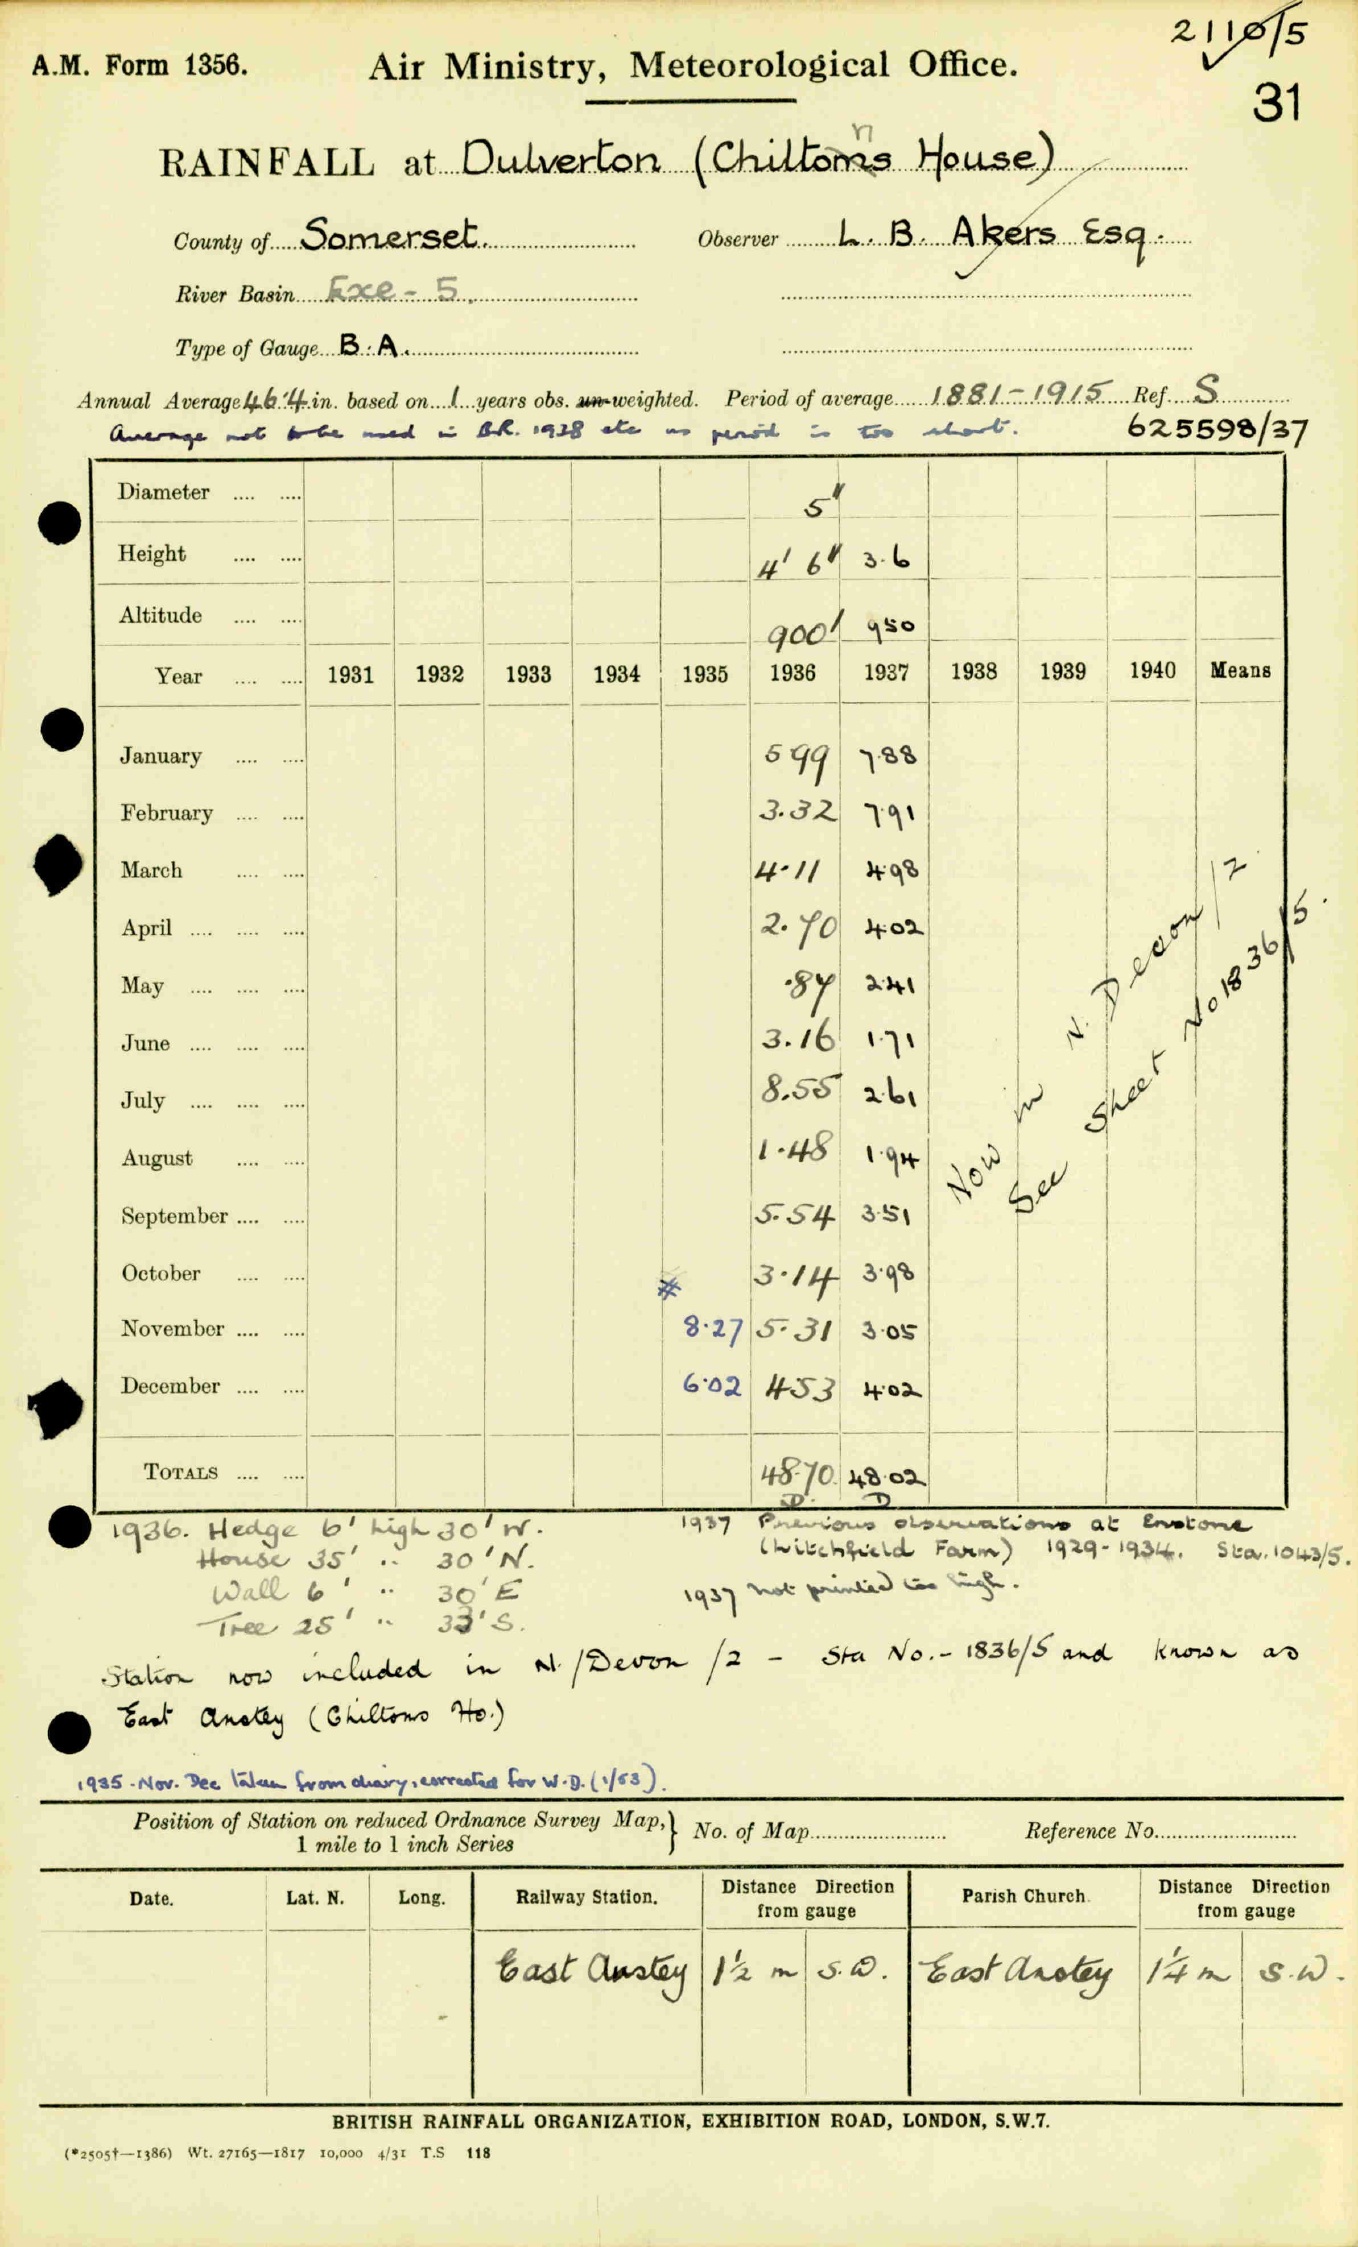 2110/5
A.M. Form 1356. Air Ministry, Meteorological Office.
31
RAINFALL at Dulverton (Chiltonns House)
n
County of Somerset. Observer L. B. Akers Esq.
River Basin Exe - 5.
Type of Gauge B.A.
Annual Average 46.4 in. based on 1 years obs. un-weighted. Period of average 1881-1915 Ref. S
Average not to be used in B.R. 1938 etc as period is too short. 625598/37
Diameter .... .... 5"
Height .... .... 4' 6" 3.6
Altitude .... .... 900' 950
Year .... .... 1931 1932 1933 1934 1935 1936 1937 1938 1939 1940 Means
January .... .... 5.99 7.88
February .... .... 3.32 7.91
March .... .... 4.11 4.98
April .... .... .... 2.70 4.02
May .... .... .... .87 2.41
June .... .... .... 3.16 1.71
July .... .... .... 8.55 2.61
August .... .... 1.48 1.94
September .... .... 5.54 3.51
October .... .... 3.14 3.98
November .... .... 8.27 5.31 3.05
December .... .... 6.02 4.53 4.02
TOTALS .... .... 48.70 48.02
D. D
Now in N. Devon/2
See Sheet No 1836/5.
1936. Hedge 6' high 30' W.
House 35' " 30' N.
Wall 6' " 30' E
Tree 25' " 33' S.
1937 Previous observations at Enstone
(Litchfield Farm) 1929-1934. Sta. 1043/5.
1937 not printed too high.
Station now included in N./Devon /2 - Sta No. - 1836/5 and known as
East Anstey (Chiltons Ho.)
1935 - Nov. Dec taken from diary, corrected for W.D. (1/53).
Position of Station on reduced Ordnance Survey Map, } No. of Map Reference No.
1 mile to 1 inch Series
Date. Lat. N. Long. Railway Station. Distance Direction from gauge Parish Church. Distance Direction from gauge
East Anstey 1½ m S.W. East Anstey 1¼ m S.W.
BRITISH RAINFALL ORGANIZATION, EXHIBITION ROAD, LONDON, S.W.7.
(*2505†—1386) Wt. 27165—1817 10,000 4/31 T.S 118